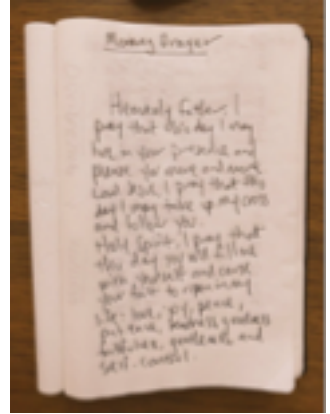 Morning Prayer
Heavenly Father, I
pray that this day I may
live in your presence and
please you more and more
Lord Jesus, I pray that this
day I may take up my cross
and follow you.
Holy Spirit, I pray that
this day you will fill me
with yourself and cause
your fruit to ripen in my
life: love, joy, peace,
patience, kindness, goodness
faithfulness, gentleness and
self-control.